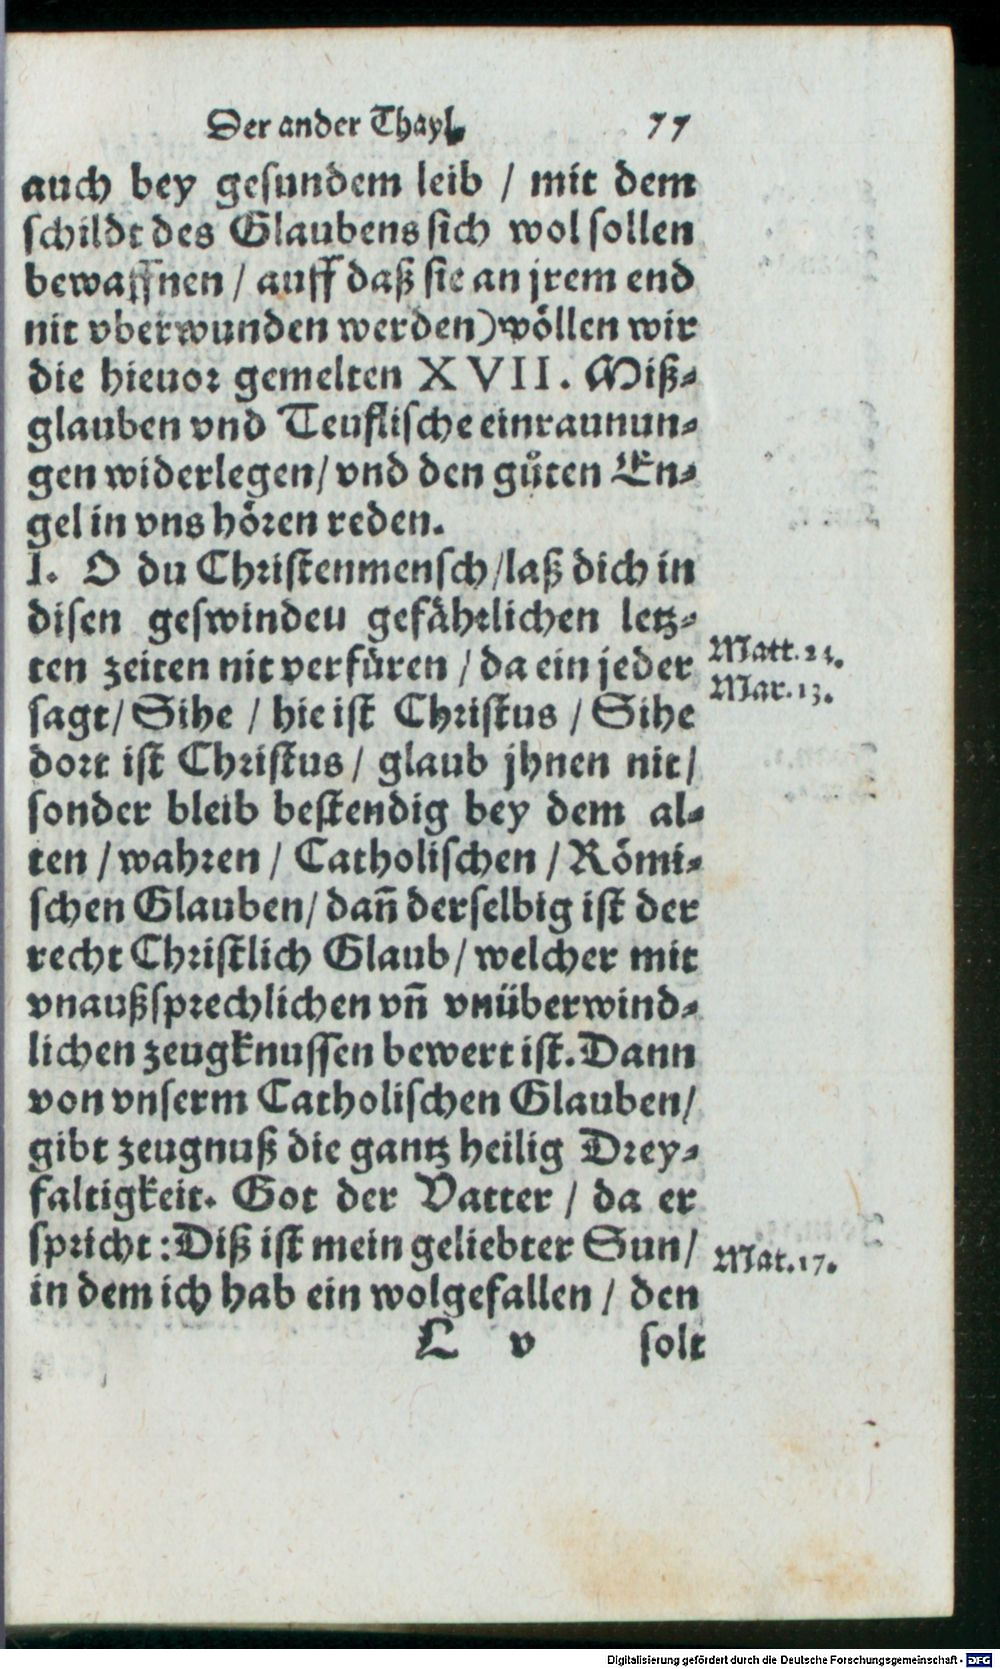 Der ander Thayl. 77
auch bey gesundem leib / mit dem
schildt des Glaubens sich wol sollen
bewaffnen / auff daß sie an jrem end
nit vberwunden werden) wöllen wir
die hieuor gemelten XVII. Miß-
glauben vnd Teuflische einraunun-
gen widerlegen / vnd den gůten En-
gel in vns hören reden.
I. O du Christenmensch / laß dich in
disen geswindeu gefährlichen letz-
ten zeiten nit verfüren / da ein jeder
Matt. 24.
Mar. 13.
sagt / Sihe / hie ist Christus / Sihe
dort ist Christus / glaub jhnen nit /
sonder bleib bestendig bey dem al-
ten / wahren / Catholischen / Römi-
schen Glauben / dañ derselbig ist der
recht Christlich Glaub / welcher mit
vnaußsprechlichen vñ vnüberwind-
lichen zeugknussen bewert ist. Dann
von vnserm Catholischen Glauben /
gibt zeugnuß die gantz heilig Drey-
faltigkeit. Got der Vatter / da er
spricht : Diß ist mein geliebter Sun /
Mat. 17.
in dem ich hab ein wolgefallen / den
L v solt
Digitalisierung gefördert durch die Deutsche Forschungsgemeinschaft - DFG